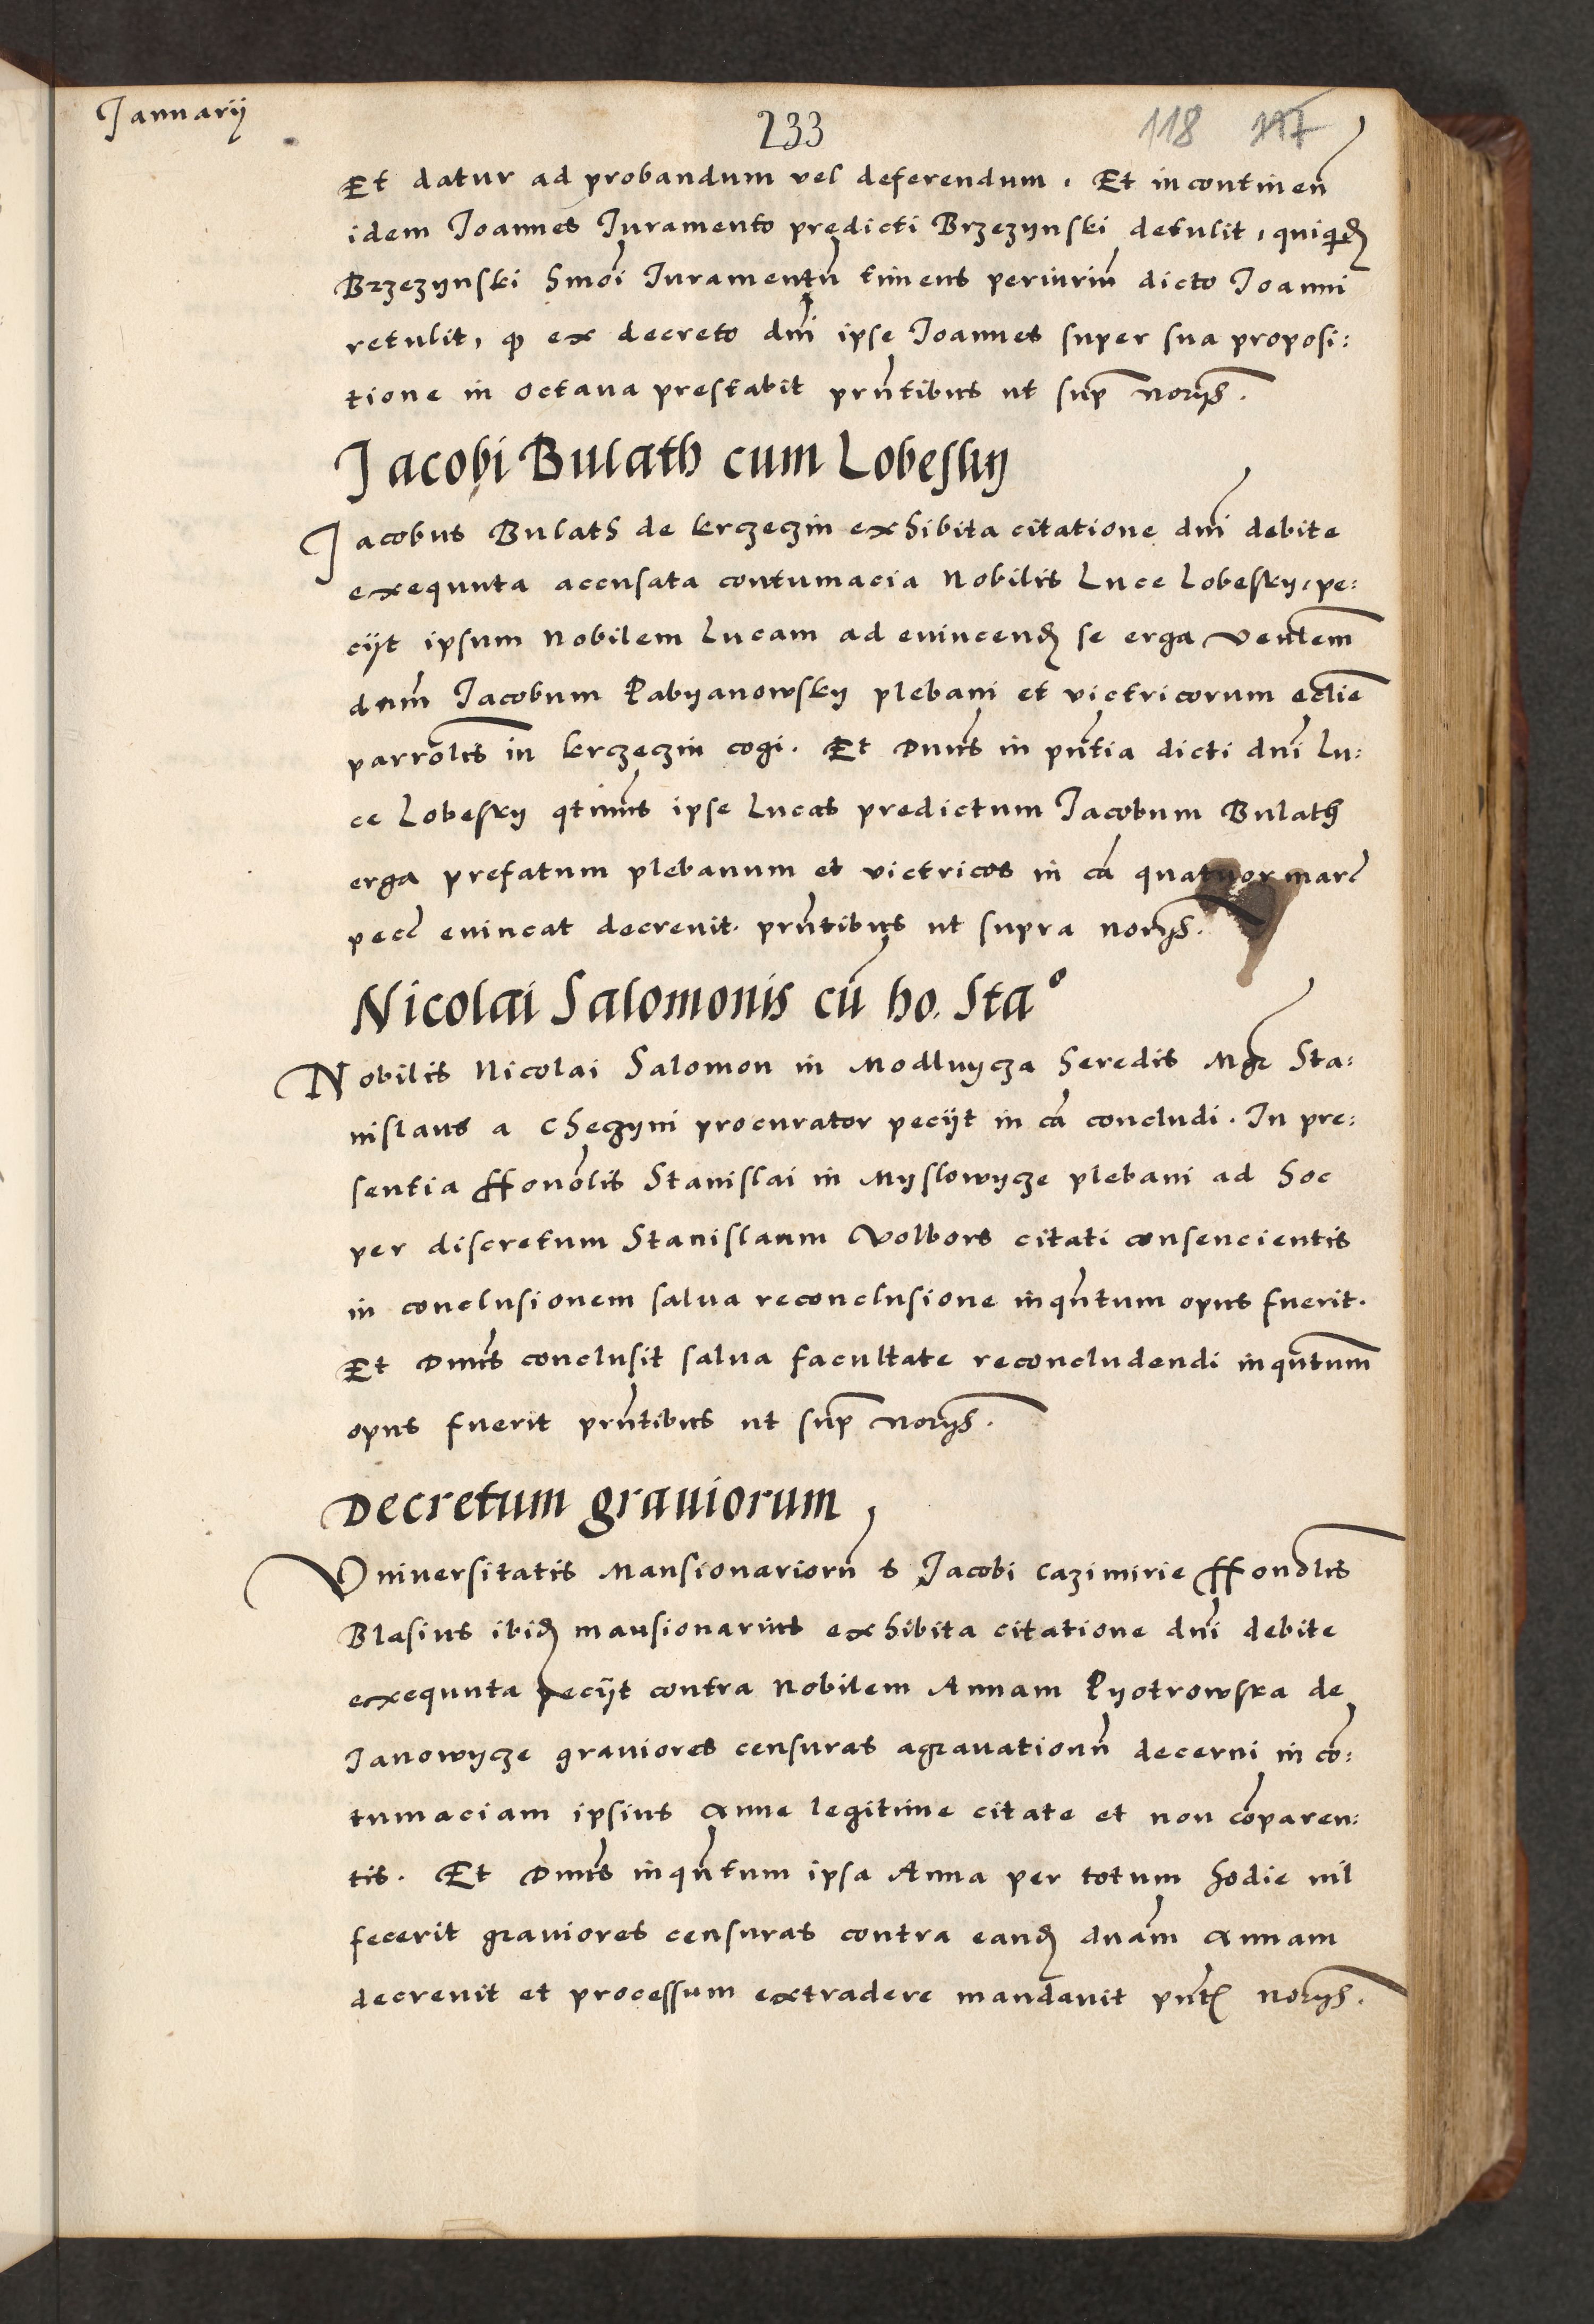 Januarij
233
118 117
Et datur ad probandum vel deferendum. Et incontinen̄
idem Joannes Juramento predicti Brzezynski detulit, quiqd̄
Brzezynski hmoī Juramentū timens periuriū dicto Joanni
retulit, qd ex decreto dnī ipse Joannes super sua proposi:
tione in octava prestabit prn̄tibus ut sup̄ norijs.
Jacobi Bulath cum Lobeskij
Jacobus Bulath de krzeczin exhibita citatione dnī debite
exequuta accusata contumacia Nobilis Luce Lobesky, pe:
cijt ipsum Nobilem Lucam ad evincend̄ se erga Ventem̄
dnm̄ Jacobum Pabyanowsky plebani et victricorum ecclie̅
parrol̄is in krzeczin cogi. Et Dnus̄ in pn̄tia dicti dnī Lu:
ce Lobesky qtinus̄ ipse Lucas predictum Jacobum Bulath
erga prefatum plebanum et victricos in cā quatuor marc̄
pecc̄ evincat decrevit. prn̄tibus ut supra norijs.
Nicolai Salomonis cū ho. Staº
Nobilis Nicolai Salomon in Modlnycza heredis Mgr̄ Sta:
nislaus a Checzyni procurator pecijt in cā concludi. In pre:
sentia Honōlis Stanislai in Myslowycze plebani ad hoc
per discretum Stanislaum Volbors citati consencientis
in conclusionem salua reconclusione inqn̄tum opus fuerit.
Et Dnus̄ conclusit salua facultate reconcludendi inqn̄tum
opus fuerit prn̄tibus ut sup̄ norijs.
Decretum grauiorum
Vniuersitatis Mansionariorū S Jacobi Cazimirie Honōlis
Blasius ibid̄ mansionarius exhibita citatione dnī debite
exequuta pecijt contra Nobilem Annam Pyotrowska de
Janowycze grauiores censuras agrauationū decerni in cō:
tumaciam ipsius Anne legitime citate et non cōparen:
tis. Et Dnus̄ inqn̄tum ipsa Anna per totum hodie nil
fecerit grauiores censuras contra eand̄ dnām Annam
decrevit et processum extradere mandavit pn̄t̄ norijs.